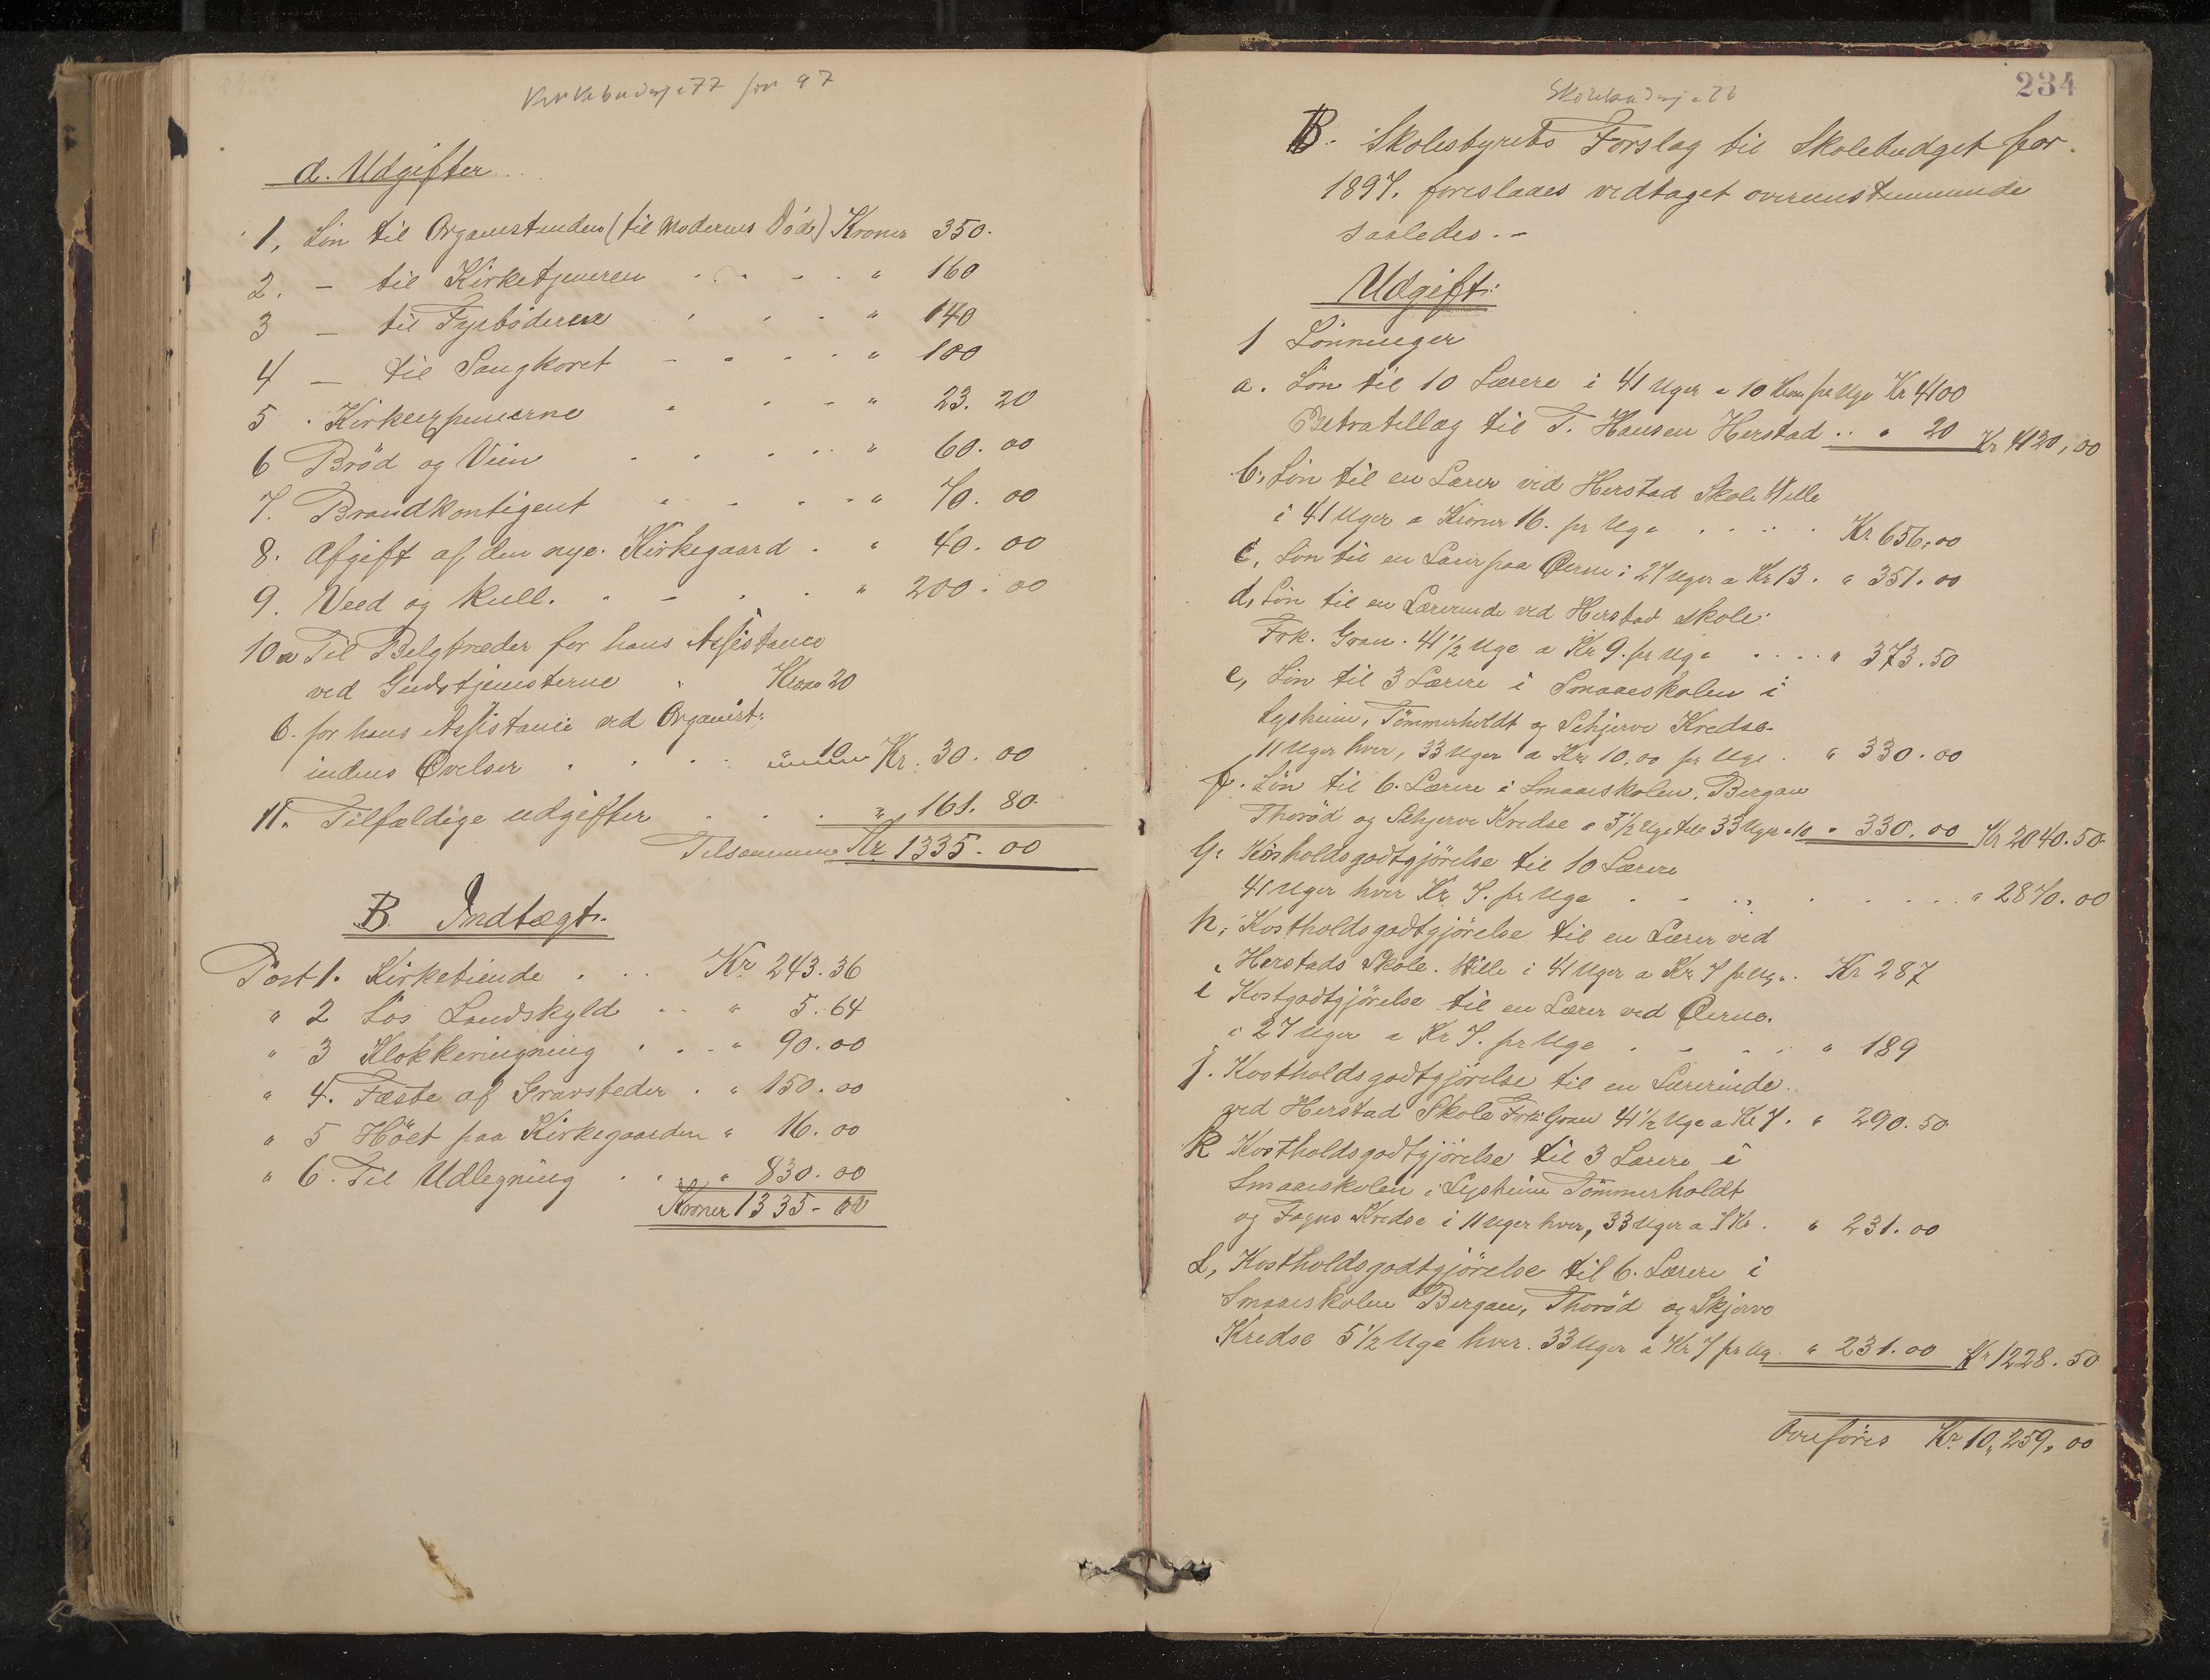 for 97
d. Udgifter
1, Løn til Organistinden (til Moderens Død) Kroner 350.
2. — til Kirketjeneren " 160
3 — til Fyrbøderen " 140
4 — til Sangkoret " 100
5 . Kirkeværgerne " 23. 20
6 Brød og Viin " 60. 00
7. Brandkontigent " 70. 00
8. Afgift af den nye Kirkegaard . " 40. 00
9. Veed og kull. " 200. 00
10 a Til Belgtræder for hans Assistance
ved Gudstjenesterne " Kroner 20
b. for hans Assistance ved Organist:
indens Øvelser " 10 Kr. 30. 00
11. Tilfældige udgifter " 161. 80.
Tilsammen Kr 1335. 00
B. Indtægt.
Post 1. Kirketiende . . . Kr 243. 36
" 2 Løs Landskyld . . " 5. 64
" 3 Klokkeringning . . . " 90. 00
" 4. Fæste af Gravsteder . " 150. 00
" 5 Høet paa Kirkegaarden " 16. 00
" 6. Til Udlegning . . " 830. 00
Kroner 1335 - 00
234
B. Skolestyrets Forslag til Skolebudget for
1897. foreslaaes vedtaget overenstemmende
saaledes. -
Udgift:
1 Lønninger
a. Løn til 10 Lærere i 41 Uger a 10 Kroner pr Uge Kr 4100
Extratillæg til T. Hansen Herstad . . " 20 Kr 4120,00
b. Løn til en Lærer ved Herstad Skole Wille
i 41 Uger a Kroner 16. pr Uge . . . . . Kr 656,00
c, Løn til en Lærer paa Øerne i 27 Uger a Kr 13. " 351. 00
d, Løn til en Lærerinde ved Herstad Skole:
Frk. Gran. 41 1/2 Uge a Kr 9. pr Uge . . . . " 373. 50
e, Løn til 3 Lærere i Smaaeskolen i
Lysheim, Tømmerholdt og Schjerve Kredse
11 Uger hver, 33 Uger a Kr 10,00 pr Uge . " 330. 00
f. Løn til 6. Lærere i Smaaeskolen, Bergan
Thorød og Schjerve Kredse a 5 1/2 Uge tils 33 Uger a 10 " 330. 00 Kr 2040. 50
g. Kostholdsgodtgjørelse til 10 Lærere
41 Uger hver Kr 7. pr Uge . . . . . . . . " 2870. 00
h, Kostholdsgodtgjørelse til en Lærer ved
Herstads Skole. Wille i 41 Uger a Kr 7 pr Uge. Kr 287
i Kostgodtgjørelse til en Lærer ved Øerne.
i 27 Uger a Kr 7. pr Uge . . . . . " 189
j. Kostholdsgodtgjørelse til en Lærerinde
ved Herstad Skole Frk Gran 41 1/2 Uge a Kr 7. " 290. 50
k Kostholdsgodtgjørelse til 3 Lærere i
Smaaeskolen i Lysheim Tømmerholdt
og Fagnes Kredse i 11 Uger hver, 33 Uger a 7 Kr . " 231. 00
L, Kostholdsgodtgjørelse til 6. Lærere i
Smaaeskolen Bergan, Thorød og Skjerve
Kredse 5 1/2 Uge hver. 33 Uger a Kr 7 pr Ug. " 231. 00 Kr 1228. 50
Overføres Kr. 10,259,00